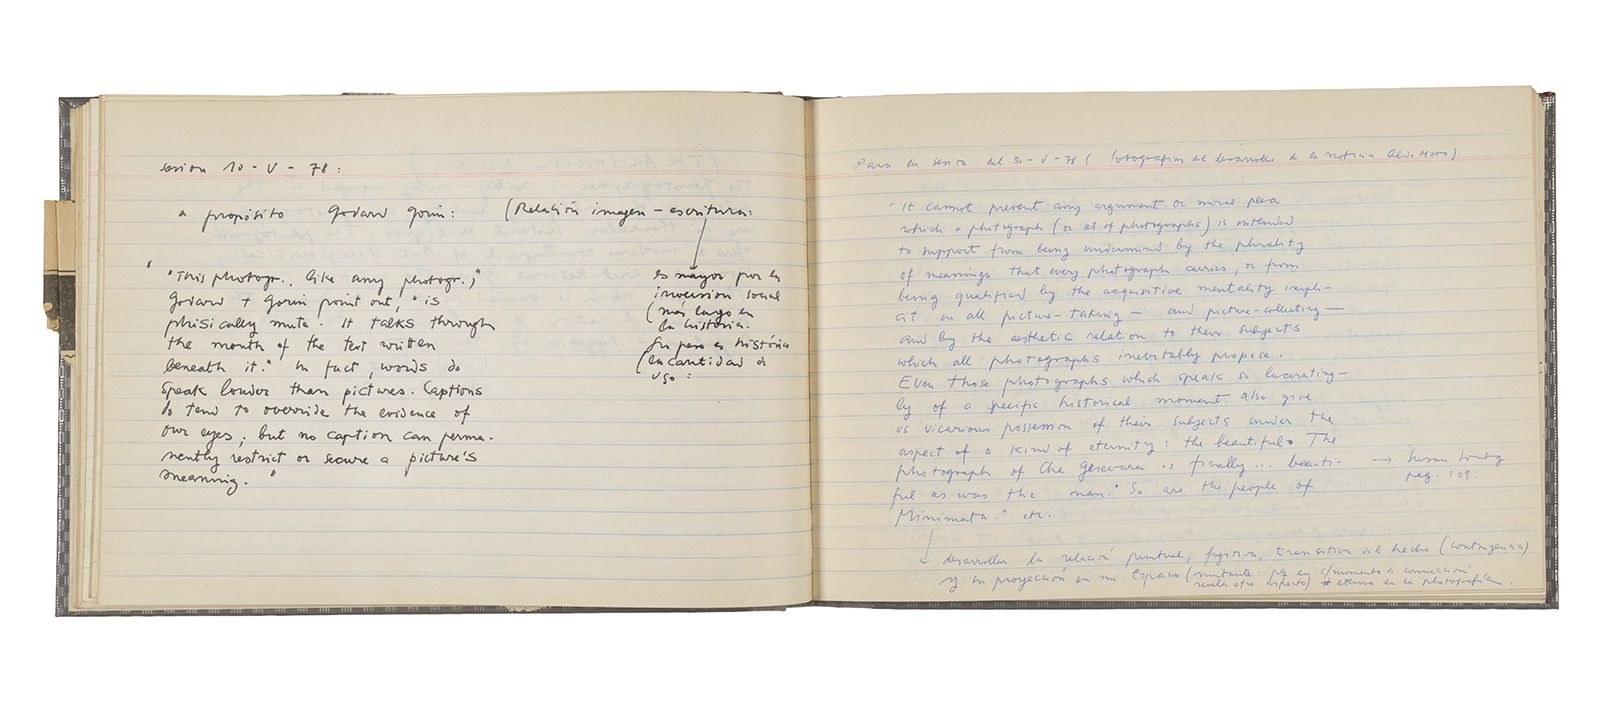 sesion 10 - V - 78 :
a propósito Godard Gorin : (Relación imagen - escritura :
es mayor por la
inversion social
(más largo en
la historia.
Su peso es história
(en cantidad de
uso :
" "This photogr.. like any photogr.,"
Godard + Gorin point out, " is
phisically mute. It talks through
the mouth of the text written
beneath it." In fact, words do
speak louder than pictures. Captions
do tend to override the evidence of
our eyes; but no caption can perma-
nently restrict or secure a picture's
meaning. "
Para la sesión del 30 - V - 78 ( fotografias del desarrollo de la noticia Aldo Moro).
" It cannot prevent any argument or moral plea
which a photograph (or set of photographs) is intended
to support from being undermined by the plurality
of meanings that every photograph carries, or from
being qualified by the acquisitive mentality impli-
cit in all picture - taking — and picture-collecting —
and by the aesthetic relation to their subjects
which all photographs inevitably propose.
Even those photographs which speak so lacerating-
ly of a specific historical moment also give
us vicarious possession of their subjects under the
aspect of a kind of eternity : the beautiful. The
photograph of Che Gevevara is finally ... beauti-
ful as was the man." So are the people of
Minimata. " etc.
→ Susan Sontag
pag. 109.
desarrollar la relación puntual, fugitiva, transitiva del hecho (contingencia)
y su proyección en un Espacio (mutante : pq en c/momento d conneccion
revela otro aspecto) eterno de la fotografía.